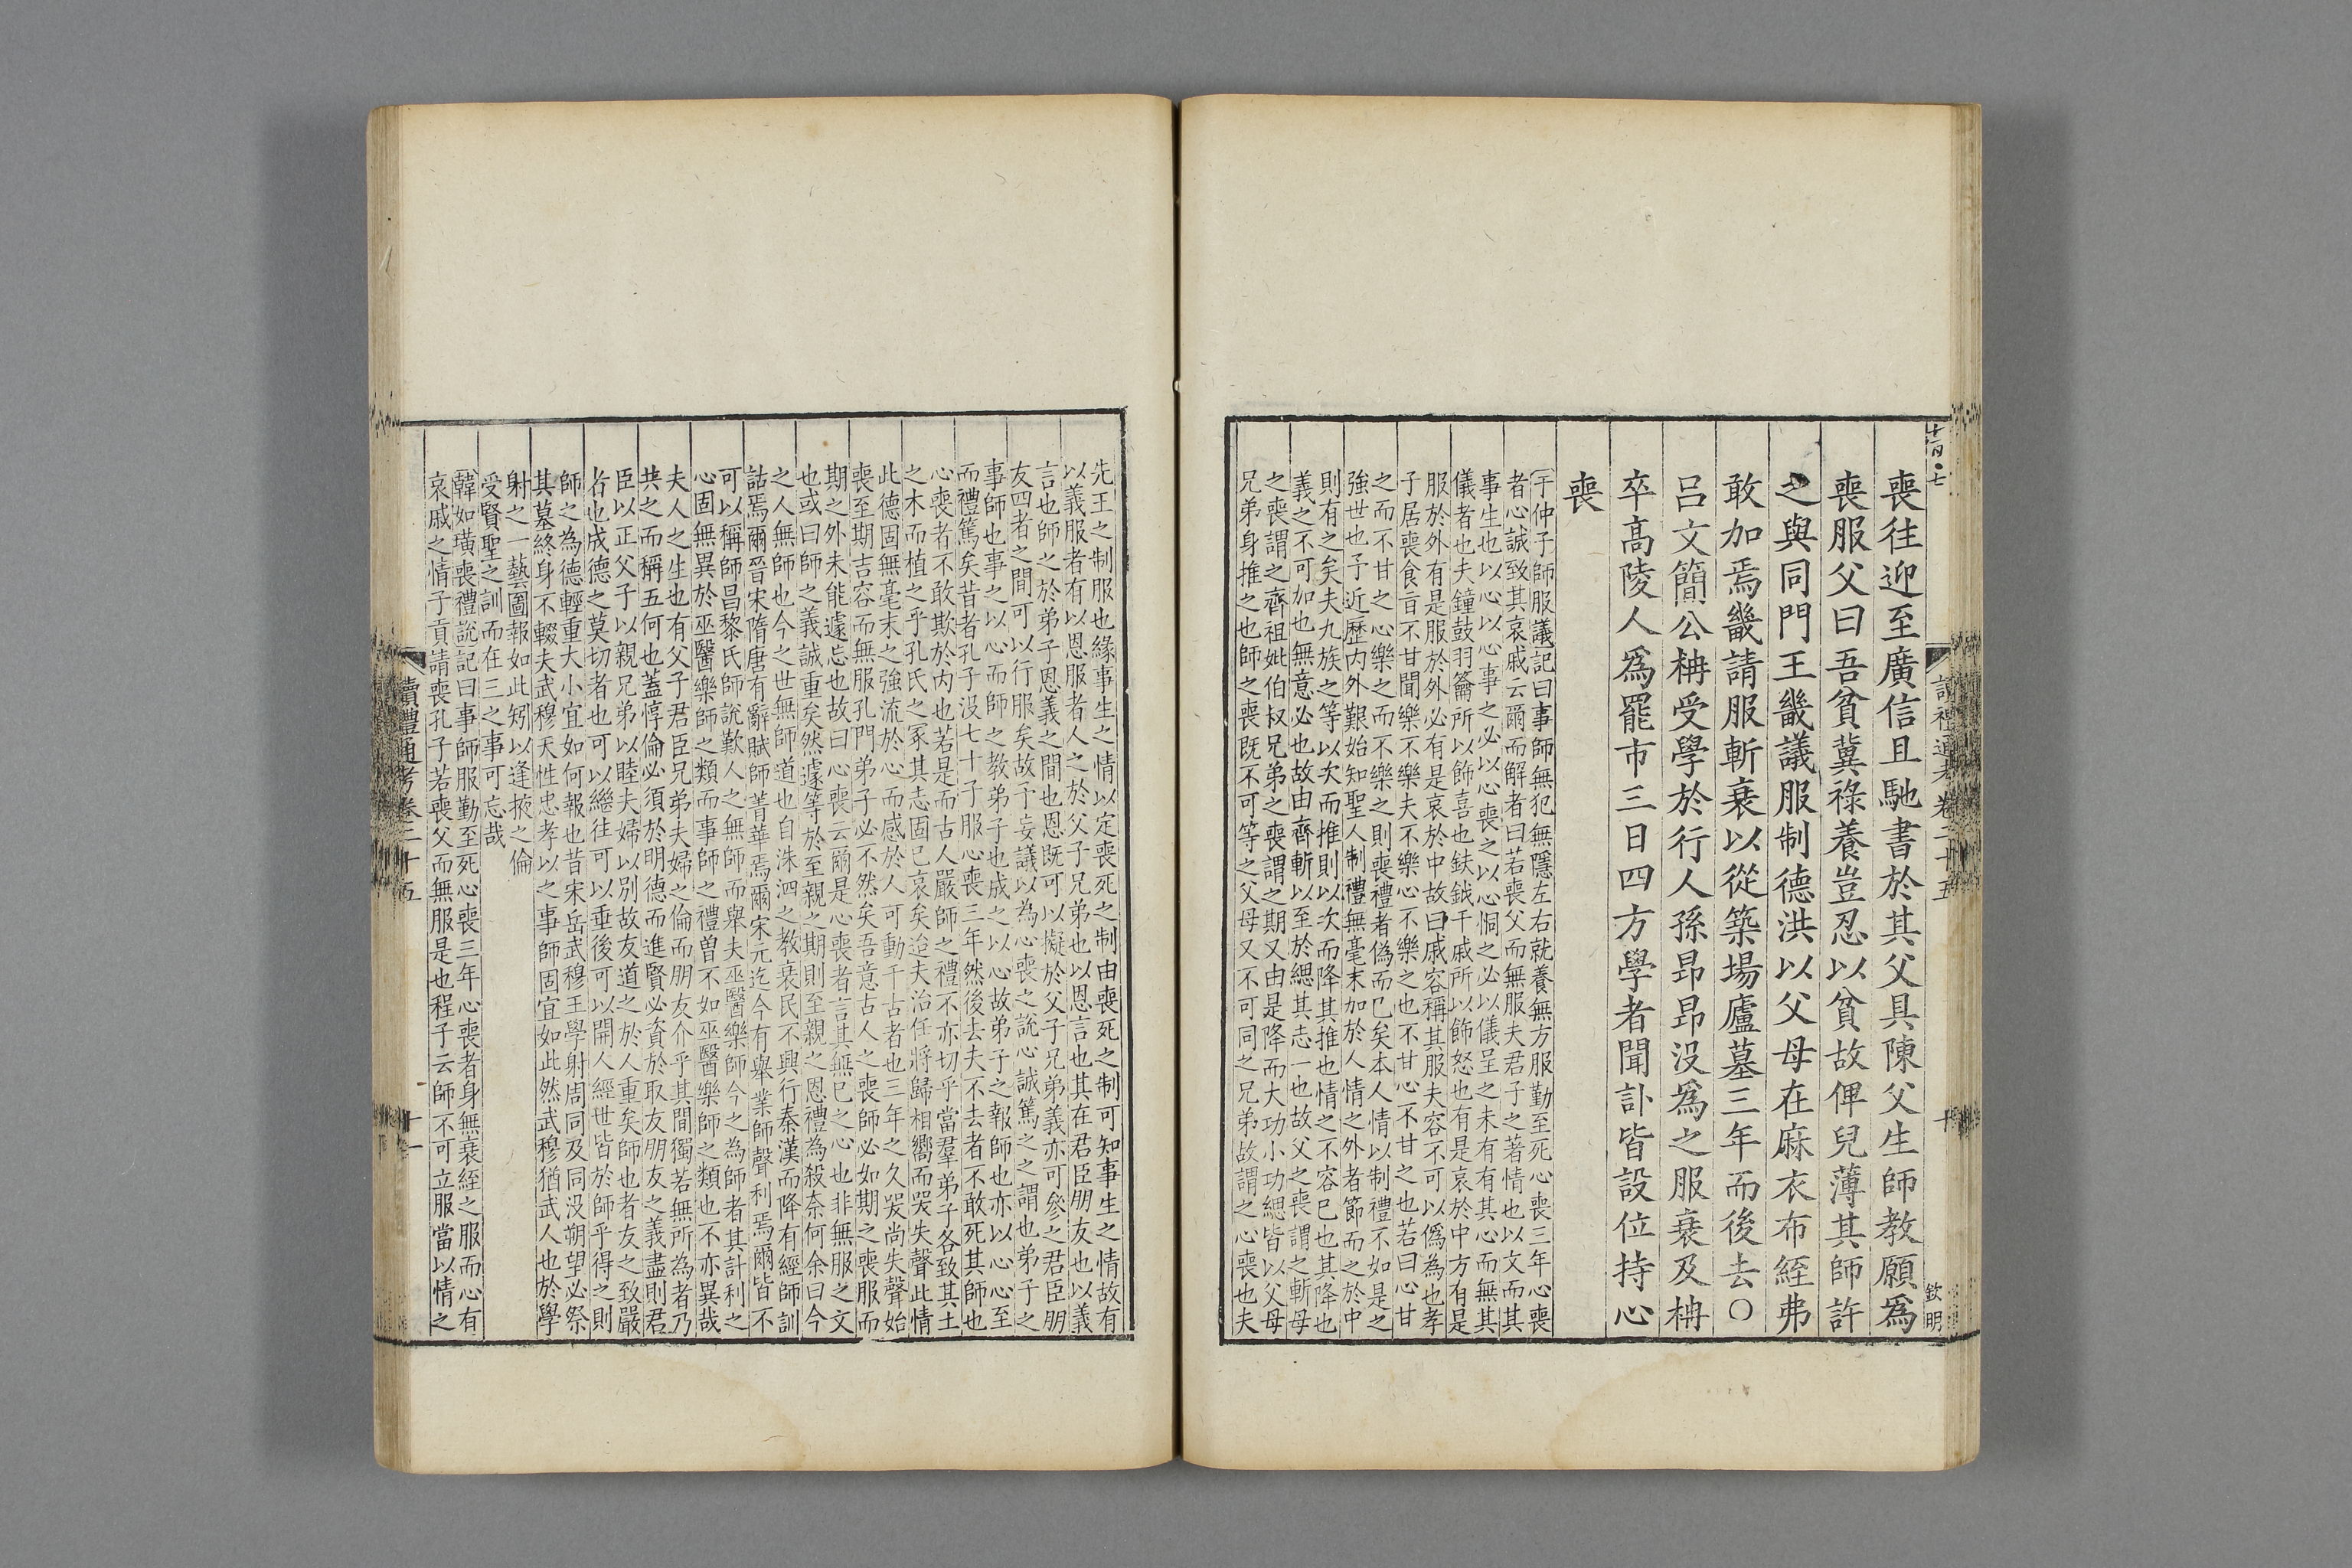 喪往迎至廣信且馳書於其父具陳父生師教願爲
喪服父曰吾貧冀祿養豈忍以貧故俾兒薄其師許
之與同門王畿議服制德洪以父母在麻衣布絰弗
敢加焉畿請服斬衰以從築場廬墓三年而後去〇
呂文簡公柟受學於行人孫昂昂没爲之服衰及柟
卒高陵人爲罷市三日四方學者聞訃皆設位持心
喪
于仲子師服議記曰事師無犯無隱左右就養無方服勤至死心喪三年心喪
者心誠致其哀戚云爾而解者曰若喪父而無服夫君子之著情也以文而其
事生也以心以心事之必以心喪之以心恫之必以儀呈之未有有其心而無其
儀者也夫鐘鼓羽籥所以飾喜也鈇鉞干戚所以飾怒也有是哀於中方有是
服於外有是服於外必有是哀於中故曰戚容稱其服夫容不可以僞為也孝
子居喪食旨不甘聞樂不樂夫不樂心不樂之也不甘心不甘之也若曰心甘
之而不甘之心樂之而不樂之則喪禮者偽而已矣本人情以制禮不如是之
強世也予近歷内外艱始知聖人制禮無毫末加於人情之外者節而之於中
則有之矣夫九族之等以次而推則以次而降其推也情之不容已也其降也
義之不可加也無意必也故由齊斬以至於緦其志一也故父之喪謂之斬母
之喪謂之齊祖妣伯叔兄弟之喪謂之期又由是降而大功小功緦皆以父母
兄弟身推之也師之喪既不可等之父母又不可同之兄弟故謂之心喪也夫
讀禮通考卷二十五
十
欽明
先王之制服也緣事生之情以定喪死之制由喪死之制可知事生之情故有
以義服者有以恩服者人之於父子兄弟也以恩言也其在君臣朋友也以義
言也師之於弟子恩義之間也恩既可以擬於父子兄弟義亦可參之君臣朋
友四者之間可以行服矣故予妄議以為心喪之說心誠篤之之謂也弟子之
事師也事之以心而師之教弟子也成之以心故弟子之報師也亦以心心至
而禮篤矣昔者孔子没七十子服心喪三年然後去夫不去者不敢死其師也
心喪者不敢欺於内也若是而古人嚴師之禮不亦切乎當羣弟子各致其土
之木而植之乎孔氏之冢其志固已哀矣迨夫治任將歸相嚮而哭失聲此情
此德固無毫末之強流於心而感於人可動千古者也三年之久哭尚失聲始
喪至期吉容而無服孔門弟子必不然矣吾意古人之喪師必如期之喪服而
期之外未能遽忘也故曰心喪云爾是心喪者言其無已之心也非無服之文
也或曰師之義誠重矣然遽等於至親之期則至親之恩禮為殺奈何余曰今
之人無師也今之世無師道也自洙泗之教衰民不興行秦漢而降有經師訓
詁焉爾晉宋隋唐有辭賦師菁華焉爾宋元迄今有舉業師聲利焉爾皆不
可以稱師昌黎氏師說歎人之無師而舉夫巫醫樂師今之為師者其計利之
心固無異於巫醫樂師之類而事師之禮曽不如巫醫樂師之類也不亦異哉
夫人之生也有父子君臣兄弟夫婦之倫而朋友介乎其間獨若無所為者乃
共之而稱五何也蓋惇倫必須於明德而進賢必資於取友朋友之義盡則君
臣以正父子以親兄弟以睦夫婦以别故友道之於人重矣師也者友之致嚴
者也成德之莫切者也可以繼往可以垂後可以開人經世皆於師乎得之則
師之為德輕重大小宜如何報也昔宋岳武穆王學射周同及同没朔望必祭
其墓終身不輟夫武穆天性忠孝以之事師固宜如此然武穆猶武人也於學
射之一藝圖報如此矧以逢掖之倫
受賢聖之訓而在三之事可忘哉
韓如璜喪禮說記曰事師服勤至死心喪三年心喪者身無衰絰之服而心有
哀戚之情子貢請喪孔子若喪父而無服是也程子云師不可立服當以情之
讀禮通考卷二十五
十一